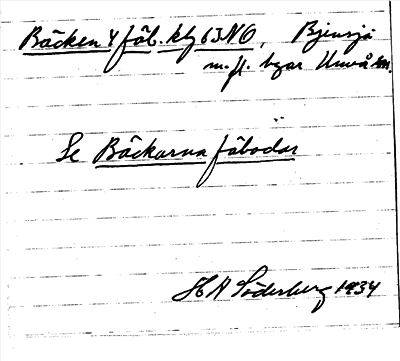 Bäcken 4 fäb. klg 63NO, Bjensjö
m.fl. byar Umeå sn.
Se Bäckarna fäbodar
HA Söderberg 1934